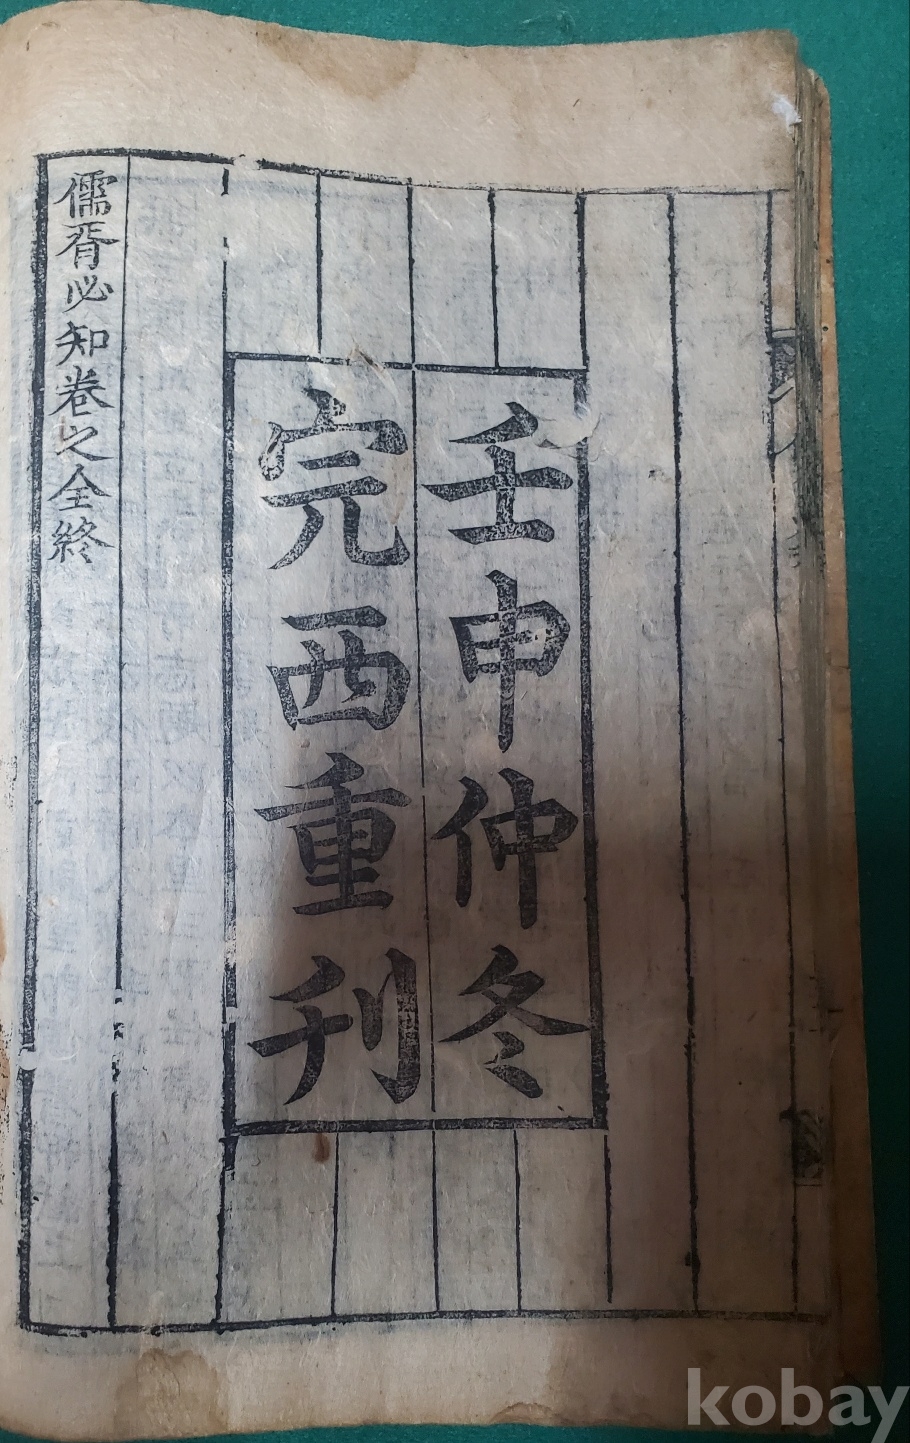 壬申仲冬
完西重刊
儒胥必知卷之全終
kobay